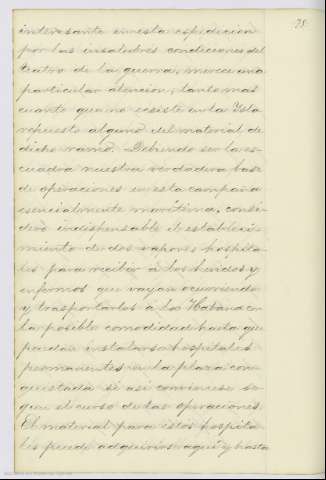 78
interesante en esta espedicion
por las insalubres condiciones del
teatro de la guerra, merece una
particular atencion, tanto mas
cuanto que no ecsiste en la Ysla
repuesto alguno del material de
dicho ramo. Debiendo ser la es-
cuadra nuestra verdadera base
de operaciones en esta campaña
esencialmente marítima, consi-
dero indispensable el estableci-
miento de dos vapores hospita-
les para recibir á los heridos y
enfermos que vayan ocurriendo
y trasportarlos á la Habana con
la posible comodidad hasta que
puedan instalarse hospitales
permanentes en la plaza con-
quistada si asi conviniese se-
gun el curso de las operaciones.
El material para estos hospita-
les puede adquirirse aqui y hasta